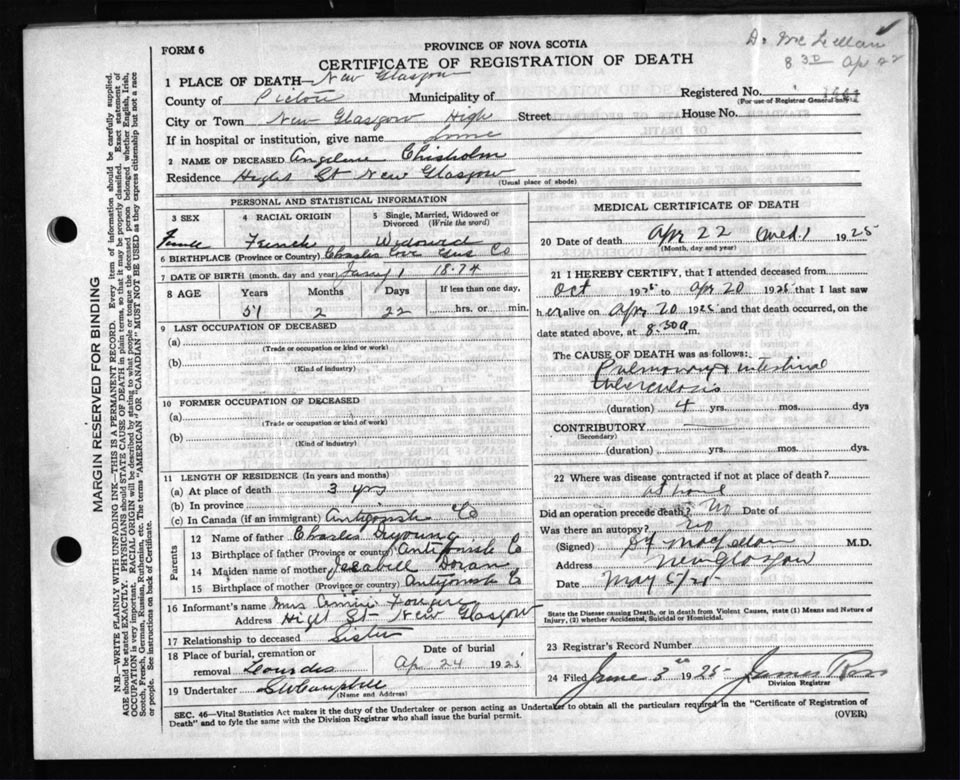 FORM 6
PROVINCE OF NOVA SCOTIA
CERTIFICATE OF REGISTRATION OF DEATH
Dr McLellan
8 3D Apr 22
1 PLACE OF DEATH—New Glasgow
County of Pictou Municipality of Registered No.
(For use of Registrar General only)
City or Town New Glasgow High Street House No.
If in hospital or institution, give name
2 NAME OF DECEASED Angeline Chisholm
Residence Hight St New Glasgow
(Usual place of abode)
PERSONAL AND STATISTICAL INFORMATION
3 SEX 4 RACIAL ORIGIN 5 Single, Married, Widowed or Divorced (Write the word)
Female French Widowed
6 BIRTHPLACE (Province or Country) Charlos Cove Gus Co
7 DATE OF BIRTH (month, day and year) 1 1874
8 AGE Years Months Days If less than one day,
51 2 22 hrs. or min.
9 LAST OCCUPATION OF DECEASED
(a)
(Trade or occupation or kind or work)
(b)
(Kind of Industry)
10 FORMER OCCUPATION OF DECEASED
(a)
(Trade or occupation or kind or work)
(b)
(Kind of Industry)
11 LENGTH OF RESIDENCE (In years and months)
(a) At place of death 3 yrs
(b) In province
(c) In Canada (if an immigrant) Antigonish Co
Parents
12 Name of father Charles
13 Birthplace of father (Province or country) Antigonish Co
14 Maiden name of mother Doran
15 Birthplace of mother (Province or country) Antigonish Co
16 Informant's name Mrs Annie
Address Hight St New Glasgow
17 Relationship to deceased Sister
18 Place of burial, cremation or removal Lourdes
Date of burial
Apr 24 1925
19 Undertaker
(Name and Address)
MEDICAL CERTIFICATE OF DEATH
20 Date of death Apr 22 (Wed.) 1925
(Month, day and year)
21 I HEREBY CERTIFY, that I attended deceased from
Oct 1925 to Apr 20 1925 that I last saw
her alive on Apr 20 1925 and that death occurred, on the
date stated above, at 8.30 a m.
The CAUSE OF DEATH was as follows:
Pulmonary & intestinal
tuberculosis
(duration) 4 yrs. mos. dys
CONTRIBUTORY
(Secondary)
(duration) yrs. mos. dys
22 Where was disease contracted if not at place of death?
at home
Did an operation precede death? No Date of
Was there an autopsy? No
(Signed) M.D.
Address New Glasgow
Date May
State the Disease causing Death, or in death from Violent Causes, state (1) Means and Nature of Injury, (2) whether Accidental, Suicidal or Homicidal.
23 Registrar's Record Number
24 Filed June 3rd 1925 James Ross
Division Registrar
SEC. 46—Vital Statistics Act makes it the duty of the Undertaker or person acting as Undertaker to obtain all the particulars required in the "Certificate of Registration of
Death" and to fyle the same with the Division Registrar who shall issue the burial permit.
(OVER)
MARGIN RESERVED FOR BINDING
N.B.—WRITE PLAINLY WITH UNFADING INK—THIS IS A PERMANENT RECORD. Every item of information should be carefully supplied.
AGE should be stated EXACTLY. PHYSICIANS should STATE CAUSE OF DEATH in plain terms, so that it may be properly classified. Exact statement of
OCCUPATION is very important. RACIAL ORIGIN will be described by stating to what people or tongue the deceased person belonged whether English, Irish,
Scotch, French, German, Russian, Ruthenian, etc. The terms "AMERICAN" OR "CANADIAN" MUST NOT BE USED as they express citizenship but not a race
or people. See instructions on back of Certificate.